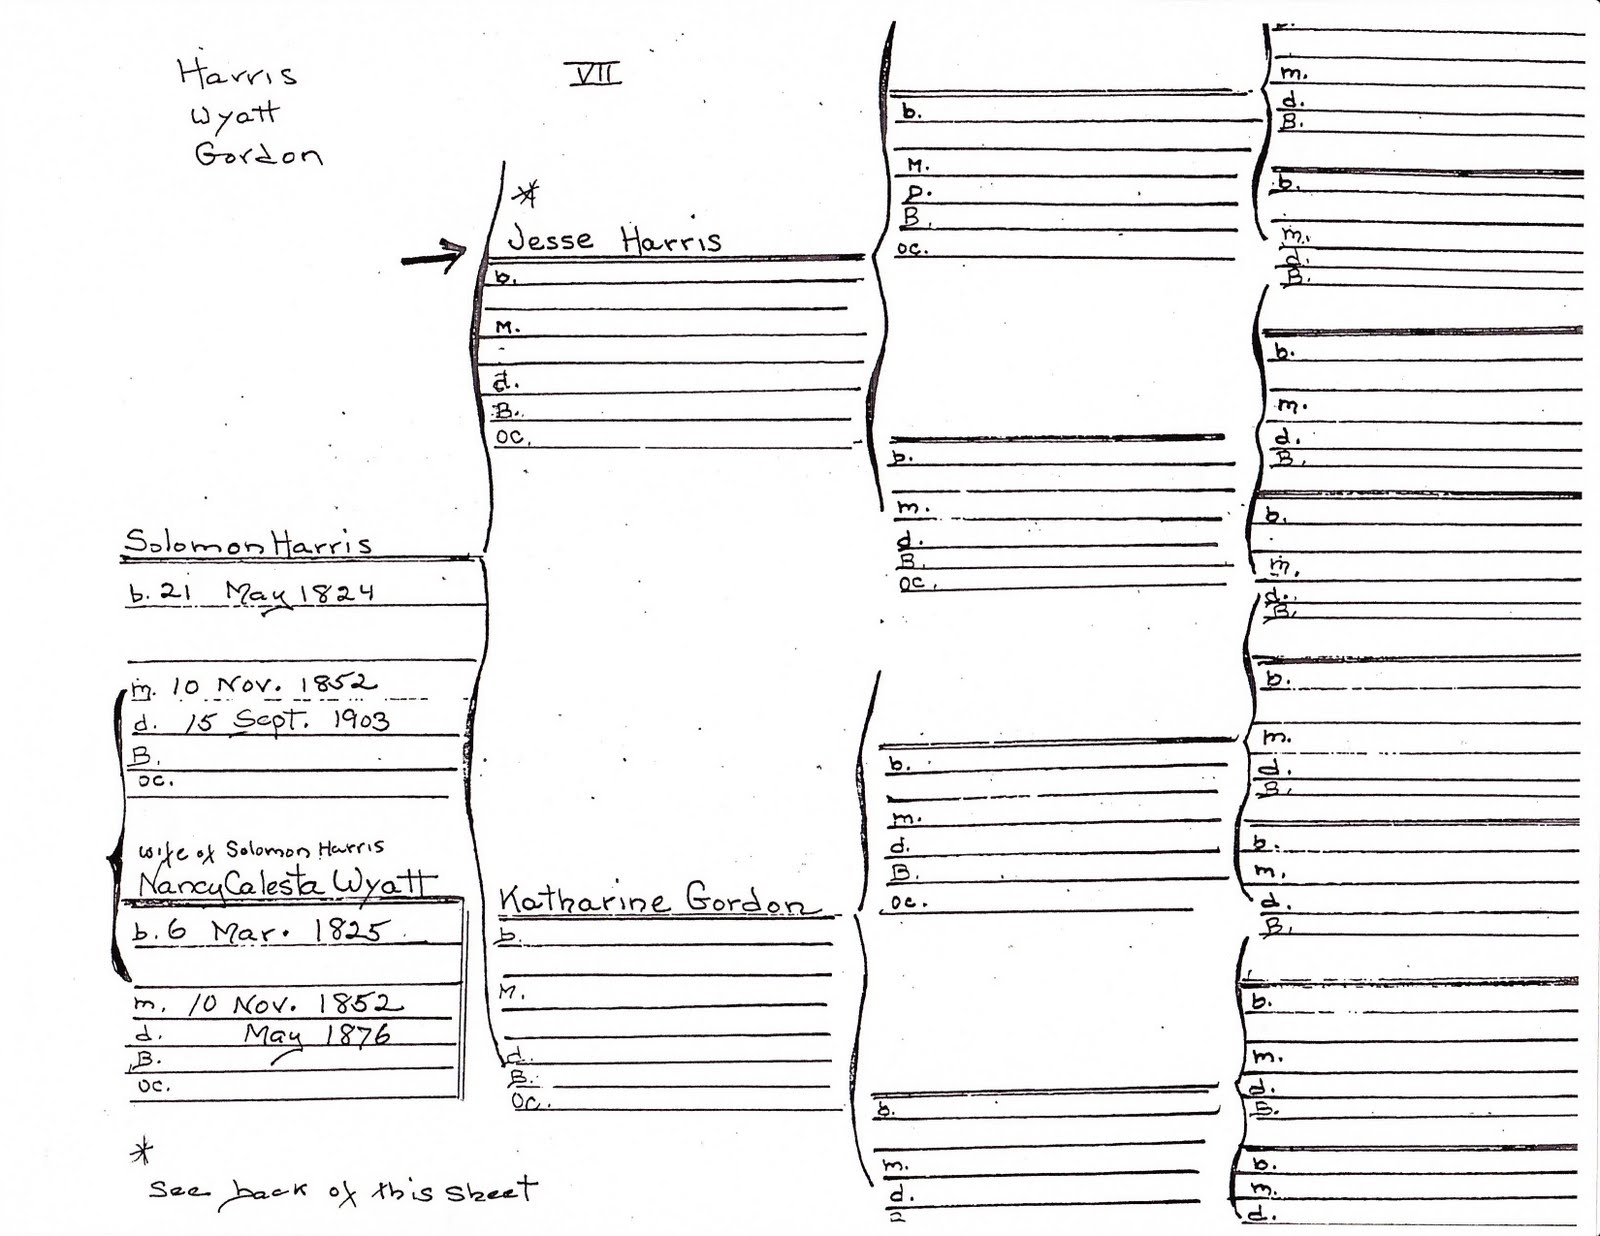 Harris
Wyatt
Gordon
VII
*
Jesse Harris
b.
M.
d.
B.
oc.
Solomon Harris
b. 21 May 1824
m. 10 Nov. 1852
d. 15 Sept. 1903
B.
oc.
wife of Solomon Harris
Nancy Calesta Wyatt
b. 6 Mar. 1825
m. 10 Nov. 1852
d. May 1876
B.
oc.
*
see back of this sheet
Katharine Gordon
b.
M.
d.
B.
oc.
b.
M.
D.
B.
oc.
b.
m.
d.
B.
oc.
b.
m.
d.
B.
oc.
b.
m.
d.
m.
d.
B.
b.
m.
d.
B.
b.
m.
d.
B.
b.
m.
d.
B.
b.
m.
d.
B.
b.
m.
d.
B.
b.
m.
d.
B.
b.
m.
d.